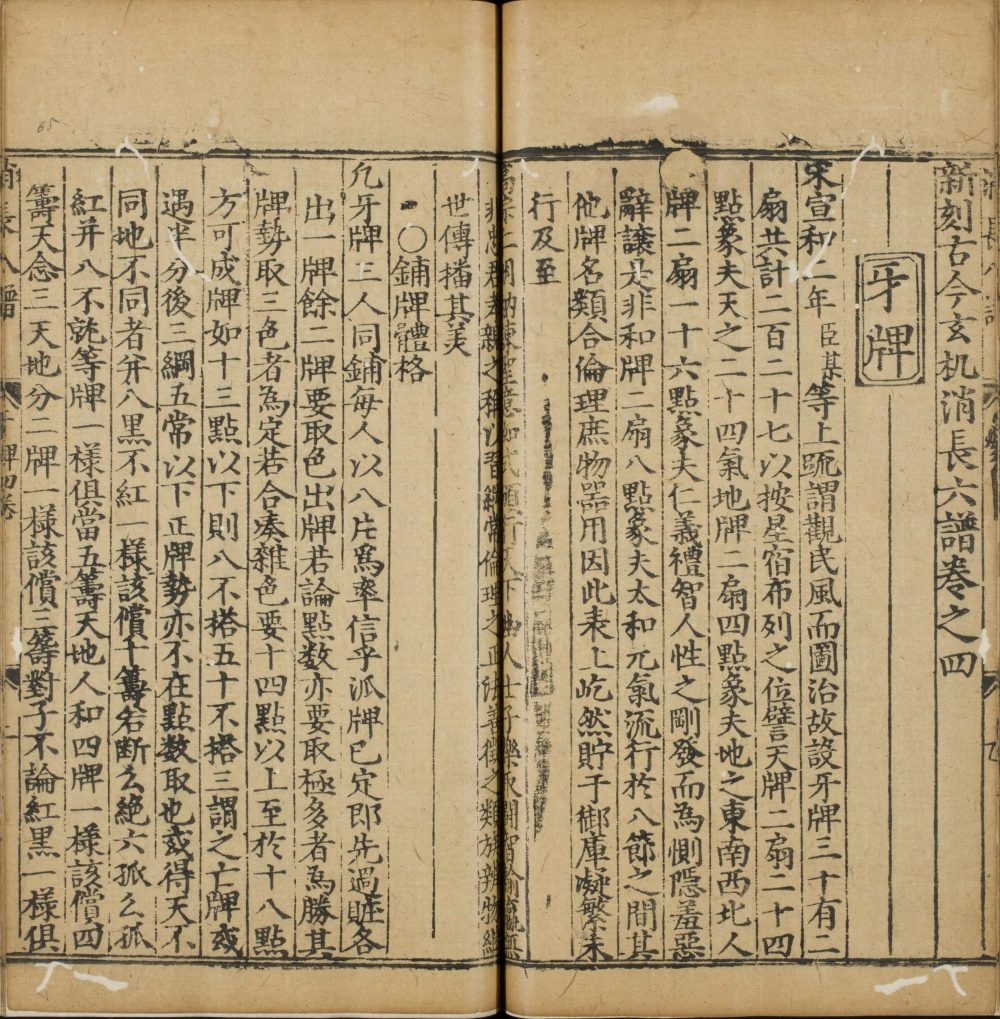 新刻古今玄机消長六譜卷之四
牙牌
宋宣和二年臣某等上疏謂觀民風而圖治故設牙牌三十有二
扇共計二百二十七以按星宿布列之位譬天牌二扇二十四
點象夫天之二十四氣地牌二扇四點象夫地之東南西北人
牌二扇一十六點象夫仁義禮智人性之剛發而為惻隱羞惡
辭讓是非和牌二扇八點象夫太和元氣流行於八節之間其
他牌名類合倫理庶物器用因此表上屹然貯于御庫凝繁未
行及至
世傳播其美
○鋪牌體格
凢牙牌三人同鋪每人以八片為率信乎派牌已定即先過賍各
出一牌餘二牌要取色出牌若論點数亦要取極多者為勝其
牌勢取三色者為定若合凑雜色要十四點以上至於十八點
方可成牌如十三點以下則八不搭五十不搭三謂之亡牌或
遇半分後三綱五常以下正牌勢亦不在點数取也或得天不
同地不同者并八黑不紅一様該償十籌若断幺絶六孤幺孤
紅并八不就等牌一様俱當五籌天地人和四牌一様該償四
籌天念三天地分二牌一様該償三籌對子不論紅黒一様俱